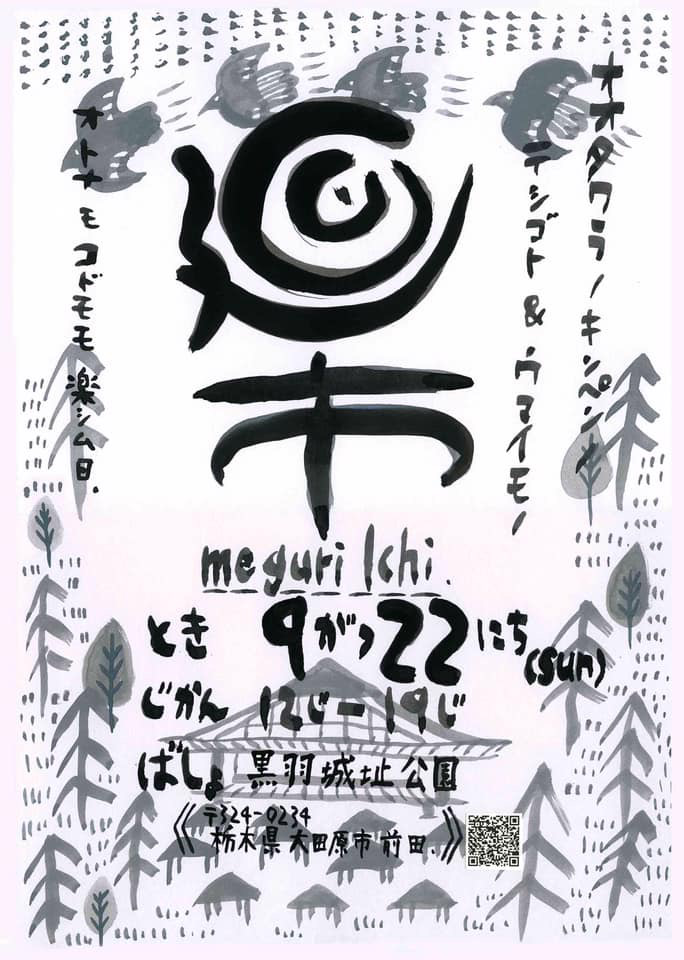 廻市
オオタワラノキンペンノ
テシゴト & ウマイモノ
オトナモコドモモ楽シム日.
meguri Ichi.
とき 9がつ22にち(sun)
じかん 12じー19じ
ばしょ 黒羽城址公園
《〒324-0234
栃木県大田原市前田.》